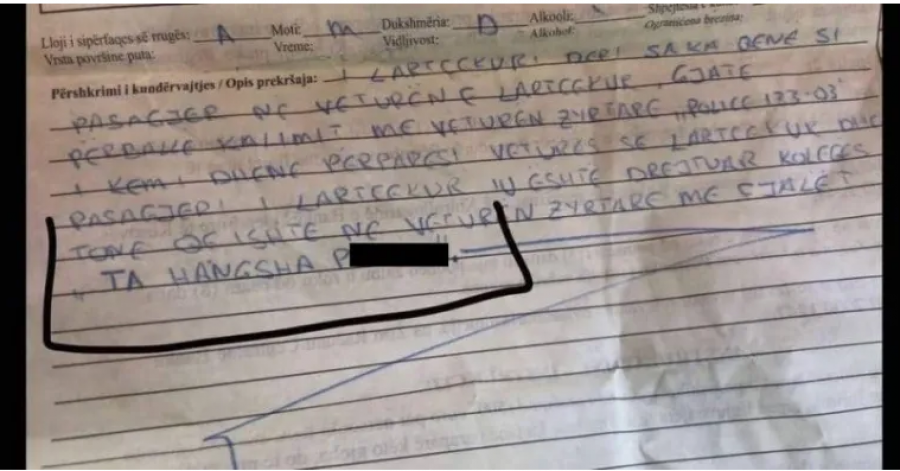 Lloji i sipërfaqes së rrugës: A Moti: M Dukshmëria: D Alkooli:
Vrsta površine puta: Vreme: Vidljivost: Alkohol: Ograničena brzina:
Përshkrimi i kundërvajtjes / Opis prekršaja: I LARTCEKURI DERI SA KA QENE SI
PASAGJER NE VETURËN E LARTCEKUR GJATË
PËRBALLE KALIMIT ME VETUREN ZYRTARE „POLICE 123-03"
I KEMI DHENE PËRPARESI VETURES SE LARTCEKUR DHE
PASAGJERI I LARTCEKUR IU ËSHTË DREJTUAR KOLEGES
TONE QE ISHTE NE VETURËN ZYRTARE ME FJALËT
„TA HANGSHA P